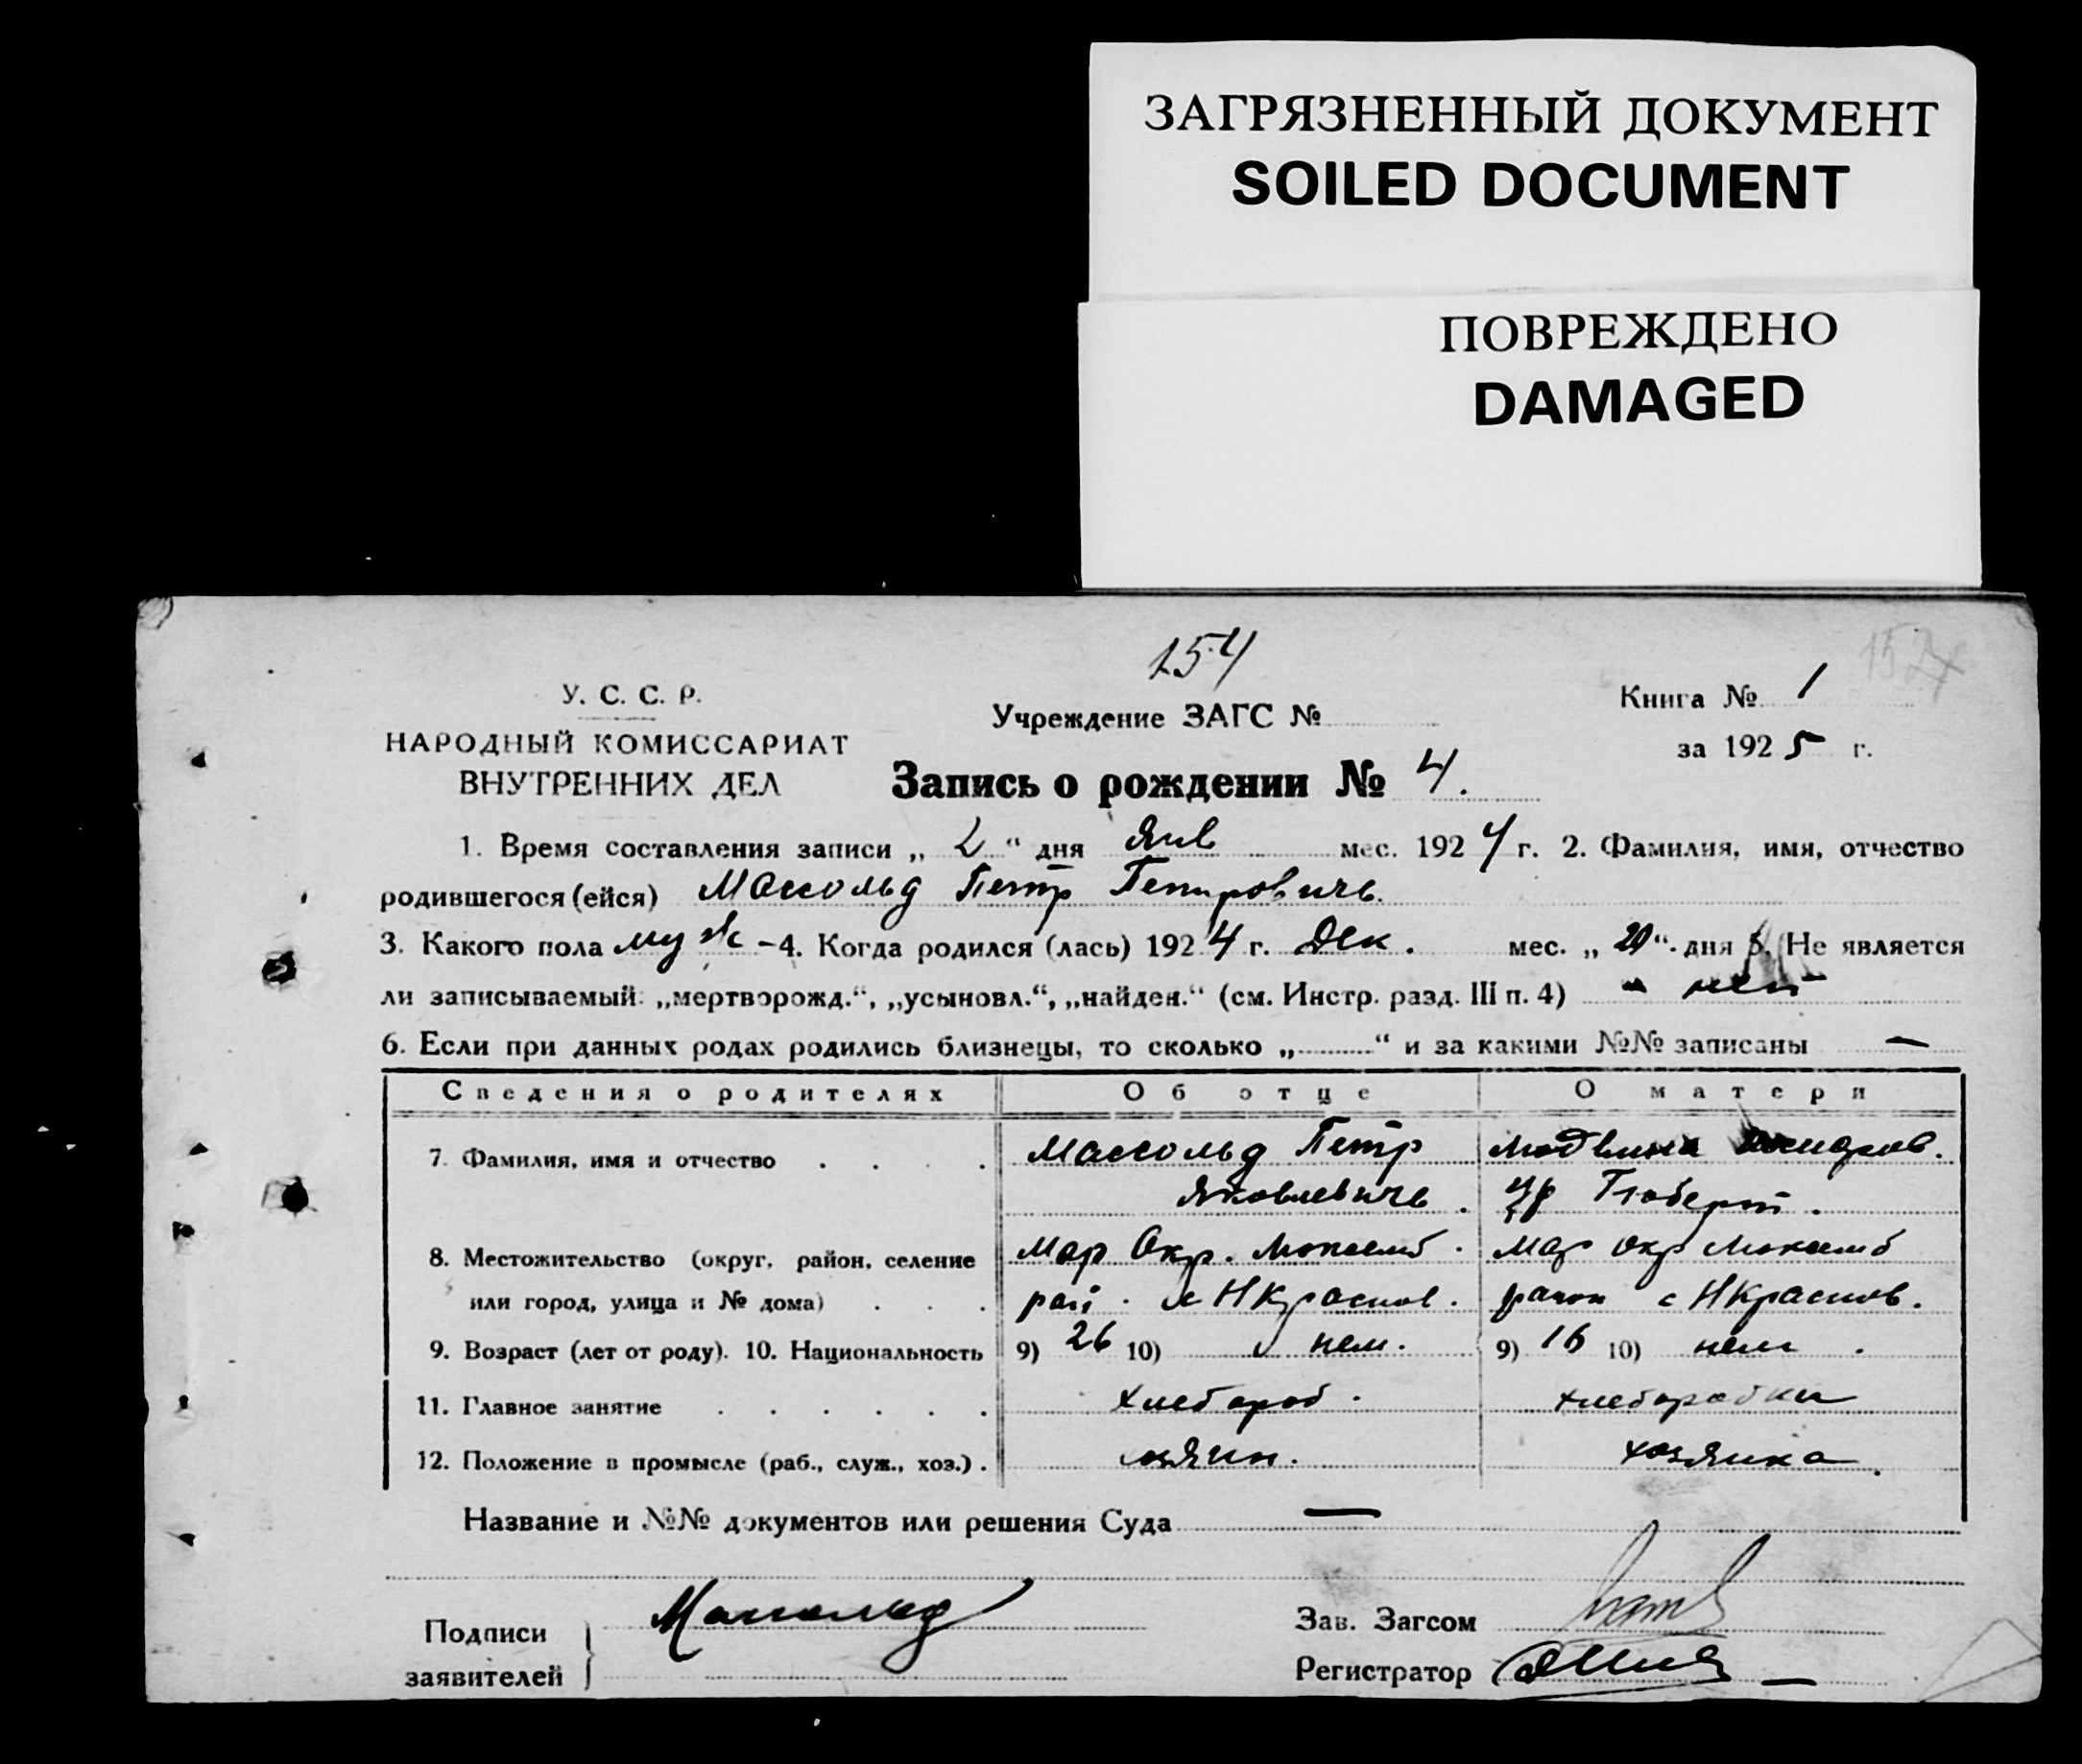 ЗАГРЯЗНЕННЫЙ ДОКУМЕНТ
SOILED DOCUMENT
ПОВРЕЖДЕНО
DAMAGED
154
У. С. С. Р.
НАРОДНЫЙ КОМИССАРИАТ
ВНУТРЕННИХ ДЕЛ
Учреждение ЗАГС №
Книга № 1
за 1925 г.
Запись о рождении № 4.
1. Время составления записи „ 2 “ дня Янв мес. 1924 г. 2. Фамилия, имя, отчество
родившегося (ейся) Массольд Петр Петровичь.
3. Какого пола муж - 4. Когда родился (лась) 1924 г. Дек. мес. „ 20 “ дня 5. Не является
ли записываемый: „мертворожд.“, „усыновл.“, „найден.“ (см. Инстр. разд. III п. 4) нет
6. Если при данных родах родились близнецы, то сколько „ “ и за какими №№ записаны —
Сведения о родителях Об отце О матери
7. Фамилия, имя и отчество Массольд Петр
Яковлевичь.
8. Местожительство (округ, район, селение Мар Окр. Мар окр
или город, улица и № дома) рай. с НКраснов. район с НКраснов.
9. Возраст (лет от роду). 10. Национальность 9) 26 10) нем. 9) 16 10) нем.
11. Главное занятие хлебороб. хлеборобка
12. Положение в промысле (раб., служ., хоз.) хозяин. хозяйка.
Название и №№ документов или решения Суда —
Подписи
заявителей
Массольд
Зав. Загсом
Регистратор